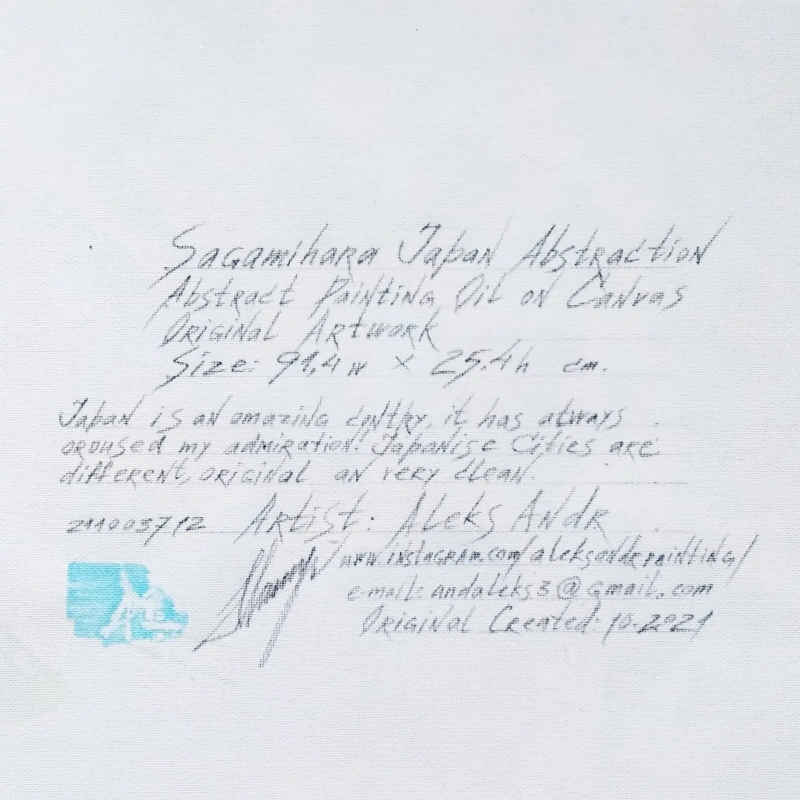 Sagamihara Japan Abstraction
Abstract Painting Oil on Canvas
Original Artwork
Size: 91,4w × 25.4h cm.
Japan is an amazing contry, it has always
aroused my admiration! Japanise Cities are
different, original an very clean.
211003712 Artist: Aleks Andr
www.instagram.com/aleksandrpainting/
e-mail: andaleks3@gmail.com
Original Created: 10.2021